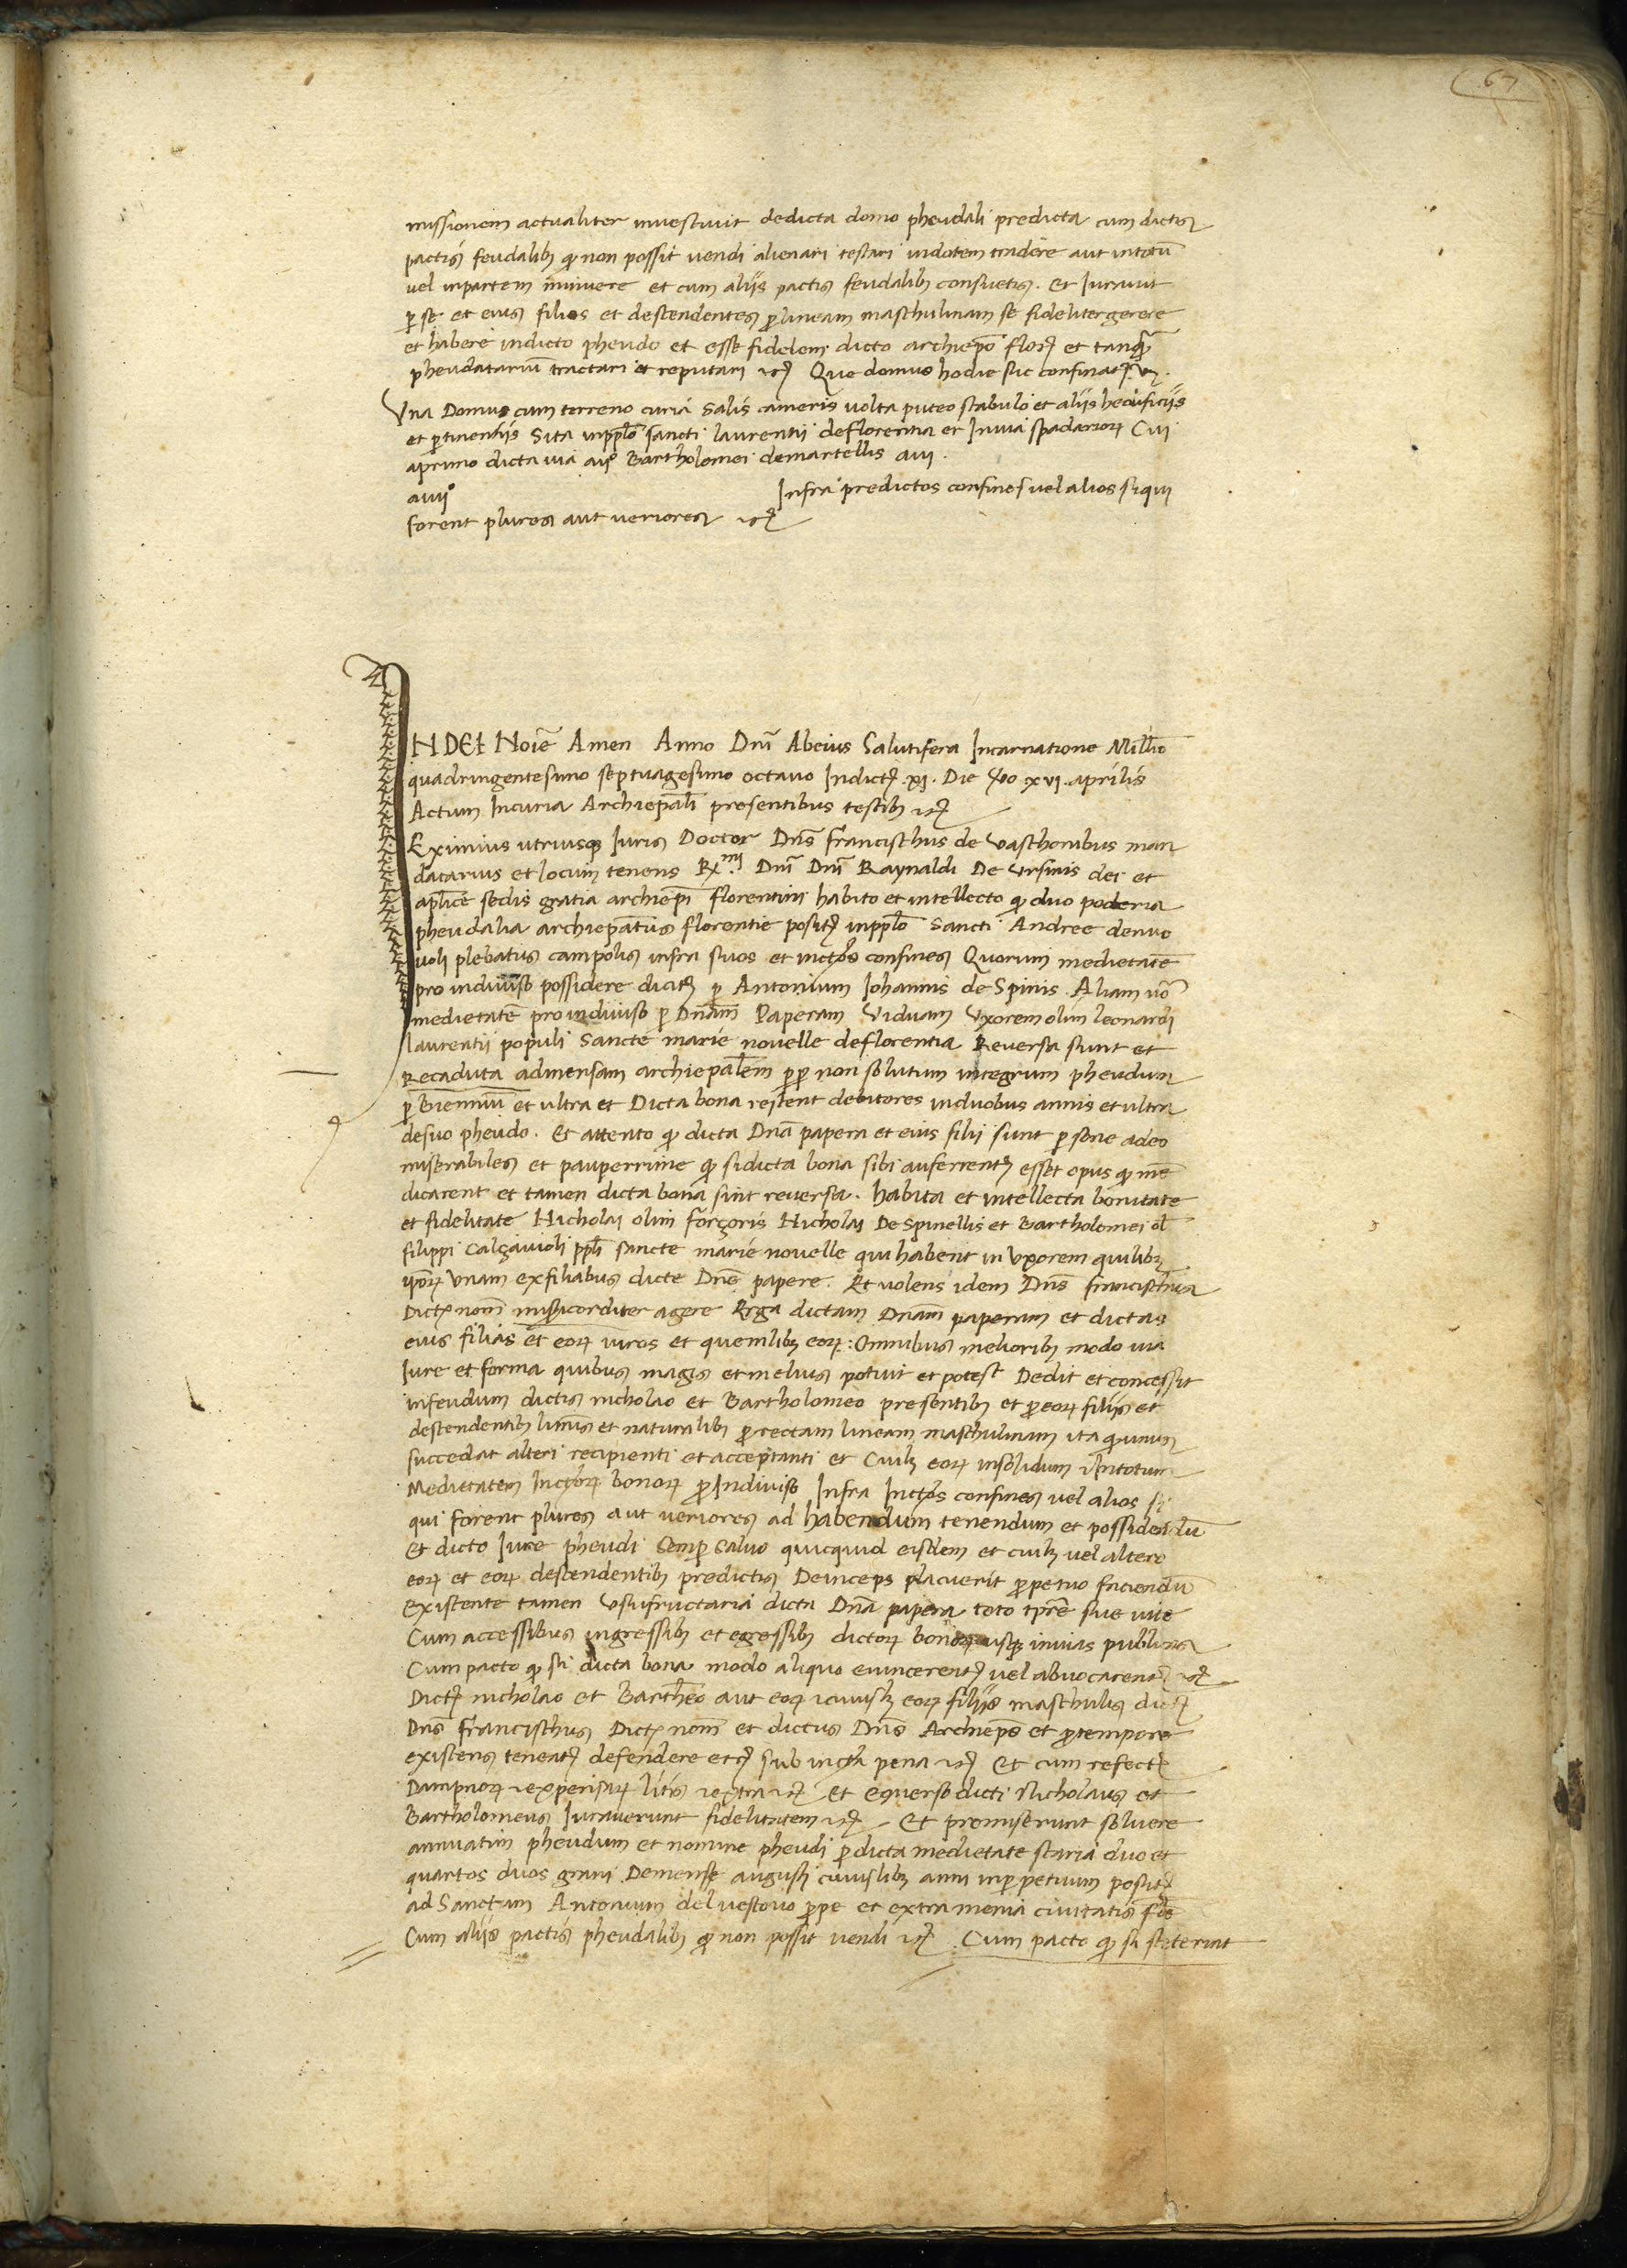 67
missionem actualiter investivit dedicta domo pheudali predicta cum dictis
pactis feudalib; ꝙ non possit vendi alienari testari indotem tradere aut intotū
vel inpartem minuere et cum aliis pactis feudalib; consuetis. et Iuravit
ꝑ se et eius filios et descendentes ꝑ lineam maschulinam se fidelitergerere
et habere indicto pheudo et esse fidelem dicto archiepō floꝝ et tanqꝫ
pheudatariū tractari et reputari ⁊cꝫ Que domus hodie sic confinatꝫ. vꝫ.
Una Domus cum terreno curia Salis cameris volta puteo stabulo et aliis hedificiis
et ꝑtinentiis Sita inpplō sancti laurentii deflorentia et Invia spadarioꝝ Cui
aprimo dicta via aijº Bartholomei demartellis aiij.
aiiijº Infra predictos confines vel alios siqui
forent plures aut veriores ⁊cꝫ
IN DEI Noiē Amen Anno Dnī Abeius Salutifera Incarnatione Millō
quadringentesimo septuagesimo octavo Indictꝫ. xj. Die xvj. aprilis
Actum Incuria Archiepali presentibus testib; ⁊cꝫ
Eximius utriusqꝫ Iuris Doctor Dns̄ francischus de vaschonibus man
datarius et locum tenens Rx.mj Dnī Dnī Raynaldi De Ursinis dei et
aplice sedis gratia archiepī florentini habito et intellecto ꝙ duo poderia
pheudalia archiepatus florentie positꝫ inpplō Sancti Andree denuo
voli plebatus campolis infra suos et inctōs confines Quorum medietatē
pro indiviso possidere dicitꝫ ꝑ Antonium Iohannis de Spinis. Aliam vō
medietatē proindiviso ꝑ Dnām Paperam Viduam Uxorem olim leonardi
laurentii populi Sancte marie novelle deflorentia Reversa sunt et
Recaduta admensam archiepalem ꝑꝑ non solutum integrum pheudum
ꝑ Biennium et ultra et Dicta bona restent debitores induobus annis et ultra
desuo pheudo. Et attento ꝙ dicta Dnā papera et eius filii sunt ꝑsone adeo
miserabiles et pauperrime ꝙ sidicta bona sibi auferrentꝫ esset opus ꝙ mē
dicarent et tamen dicta bona sint reversa. habita et intellecta bonitate
et fidelitate Nicholai olim forçoris Nicholai De Spinellis et Bartholomei ol̄
filippi Calçaiuoli ppli sancte marie novelle qui habent in Uxorem quilib;
ipōꝝ Unam exfiliabus dicte Dnē papere. Et volens idem Dns̄ francischus
Dictꝫ nom̄ misericorditer agere Erga dictam Dnam̄ paperam et dictas
eius filias et eoꝝ viros et quemlib; eoꝝ: Omnibus meliorib; modo via
Iure et forma quibus magis et melius potuit et potest Dedit et concessit
infeudum dictis nicholao et Bartholomeo presentib; et ꝑ eoꝝ filiis et
descendentib; litimis et naturalib; ꝑ rectam lineam maschulinam ita ꝙ unus
succedat alteri recipienti et acceptanti et Cuilꝫ eoꝝ insolidum Intotum
Medietatem Inctōꝝ bonoꝝ ꝓ Indiviso Infra Inctōs confines vel alios si
qui forent plures aut veriores ad habendum tenendum et possidendū
et dicto Iure pheudi Semꝑ Salvo quicquid eisdem et cuilꝫ vel altero
eoꝝ et eoꝝ descendentib; predictis Deinceps placuerit ꝑpetuo faciendū
Existente tamen Usufructaria dicta Dnā papera toto tprē sue vite
Cum accessibus ingressib; et egressib; dictoꝝ bonoꝝ usqꝫ invias publicas
Cum pacto ꝙ si dicta bona modo aliquo evincerentꝫ vel abvocarentꝫ ⁊cꝫ
Dictꝫ nicholao et Barthēo aut eoꝝ ⁊ cuiuslꝫ eoꝝ filiis maschulis dictꝫ
Dns̄ francischus Dictꝫ nom̄ et dictus Dns̄ Archiepṡ et ꝓ tempore
existens teneatꝫ defendere etcꝫ sub incta pena ⁊cꝫ Et cum refectꝫ
Dampnoꝝ ⁊ expensaꝝ litis ⁊ extra ⁊cꝫ Et eqverso dicti Nicholaus et
Bartholomeus Iuraverunt fidelitatem ⁊cꝫ Et promiserunt solvere
annuatim pheudum et nomine pheudi ꝓ dicta medietate staria duo et
quartos duos grani Demense augusti cuiuslib; anni inꝑpetuum positꝫ
ad Sanctum Antonium delvescovo ꝓpe et extra menia civitatis flō
Cum aliis pactis pheudalib; ꝙ non possit vendi ⁊cꝫ Cum pacto ꝙ si steterint